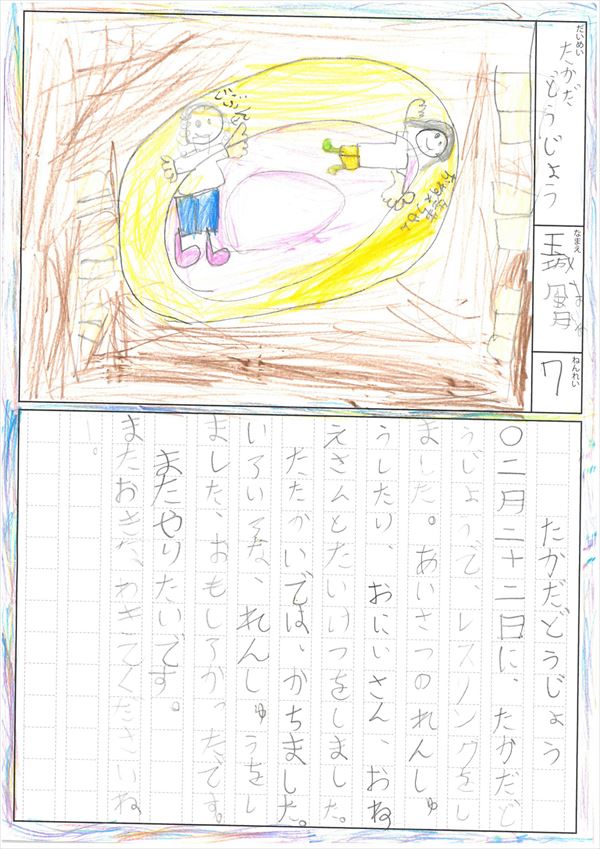 だいめい
たかだ
どうじょう
なまえ
ねんれい
7
じぶん
たかだどうじょう
〇二月二十二日に、たかだど
うじょうで、レスリングをし
ました。あいさつのれんしゅ
うしたり、おにいさん、おね
えさんとたいけつをしました。
たたかいでは、かちました。
いろいろな、れんしゅうをし
ました、おもしろかったです。
またやりたいです。
てくださいね
！。